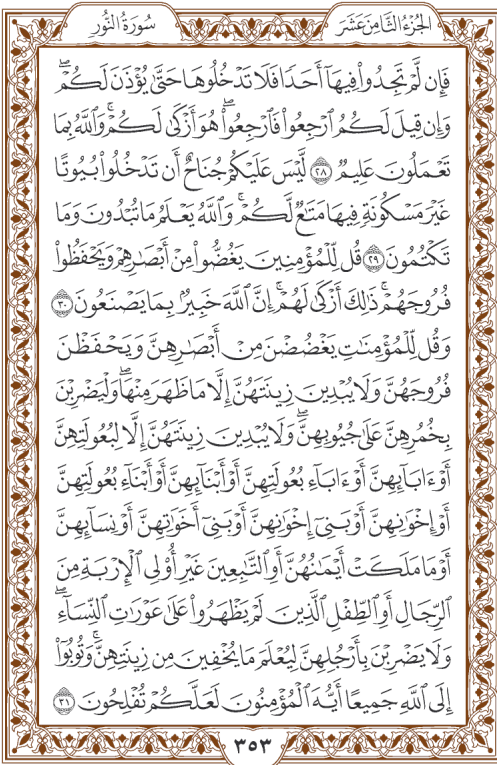 الجزء الثامن عشر
سورة النور
فَإِن لَّمْ تَجِدُوا۟ فِيهَآ أَحَدًا فَلَا تَدْخُلُوهَا حَتَّىٰ يُؤْذَنَ لَكُمْ ۖ
وَإِن قِيلَ لَكُمُ ٱرْجِعُوا۟ فَٱرْجِعُوا۟ ۖ هُوَ أَزْكَىٰ لَكُمْ ۚ وَٱللَّهُ بِمَا
تَعْمَلُونَ عَلِيمٌ ٢٨ لَّيْسَ عَلَيْكُمْ جُنَاحٌ أَن تَدْخُلُوا۟ بُيُوتًا
غَيْرَ مَسْكُونَةٍ فِيهَا مَتَـٰعٌ لَّكُمْ ۚ وَٱللَّهُ يَعْلَمُ مَا تُبْدُونَ وَمَا
تَكْتُمُونَ ٢٩ قُل لِّلْمُؤْمِنِينَ يَغُضُّوا۟ مِنْ أَبْصَـٰرِهِمْ وَيَحْفَظُوا۟
فُرُوجَهُمْ ۚ ذَٰلِكَ أَزْكَىٰ لَهُمْ ۗ إِنَّ ٱللَّهَ خَبِيرٌۢ بِمَا يَصْنَعُونَ ٣٠
وَقُل لِّلْمُؤْمِنَـٰتِ يَغْضُضْنَ مِنْ أَبْصَـٰرِهِنَّ وَيَحْفَظْنَ
فُرُوجَهُنَّ وَلَا يُبْدِينَ زِينَتَهُنَّ إِلَّا مَا ظَهَرَ مِنْهَا ۖ وَلْيَضْرِبْنَ
بِخُمُرِهِنَّ عَلَىٰ جُيُوبِهِنَّ ۖ وَلَا يُبْدِينَ زِينَتَهُنَّ إِلَّا لِبُعُولَتِهِنَّ
أَوْ ءَابَآئِهِنَّ أَوْ ءَابَآءِ بُعُولَتِهِنَّ أَوْ أَبْنَآئِهِنَّ أَوْ أَبْنَآءِ بُعُولَتِهِنَّ
أَوْ إِخْوَٰنِهِنَّ أَوْ بَنِىٓ إِخْوَٰنِهِنَّ أَوْ بَنِىٓ أَخَوَٰتِهِنَّ أَوْ نِسَآئِهِنَّ
أَوْ مَا مَلَكَتْ أَيْمَـٰنُهُنَّ أَوِ ٱلتَّـٰبِعِينَ غَيْرِ أُو۟لِى ٱلْإِرْبَةِ مِنَ
ٱلرِّجَالِ أَوِ ٱلطِّفْلِ ٱلَّذِينَ لَمْ يَظْهَرُوا۟ عَلَىٰ عَوْرَٰتِ ٱلنِّسَآءِ ۖ
وَلَا يَضْرِبْنَ بِأَرْجُلِهِنَّ لِيُعْلَمَ مَا يُخْفِينَ مِن زِينَتِهِنَّ ۚ وَتُوبُوٓا۟
إِلَى ٱللَّهِ جَمِيعًا أَيُّهَ ٱلْمُؤْمِنُونَ لَعَلَّكُمْ تُفْلِحُونَ ٣١
٣٥٣